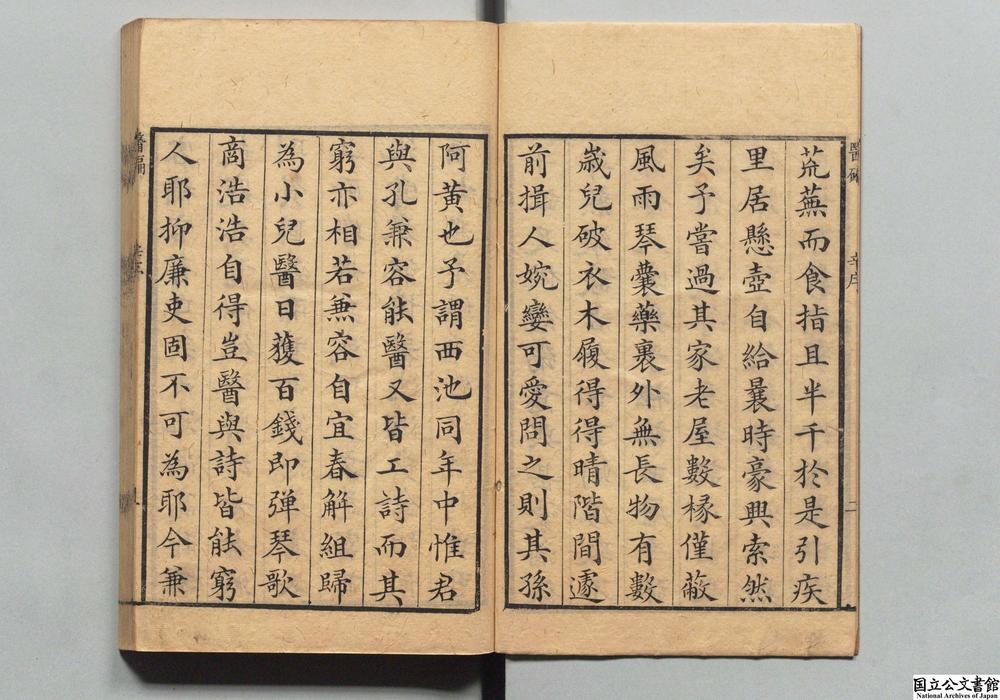 荒蕪而食指且半千於是引疾
里居懸壺自給曩時豪興索然
矣予嘗過其家老屋數椽僅蔽
風雨琴囊藥裹外無長物有數
歲兒破衣木屐得得晴階間遽
前揖人婉孌可愛問之則其孫
阿黃也予謂西池同年中惟君
與孔兼容能醫又皆工詩而其
窮亦相若兼容自宜春解組歸
為小兒醫日獲百錢即弹琴歌
商浩浩自得豈醫與詩皆能窮
人耶抑廉吏固不可為耶今兼
辛序
二
国立公文書館
National Archives of Japan